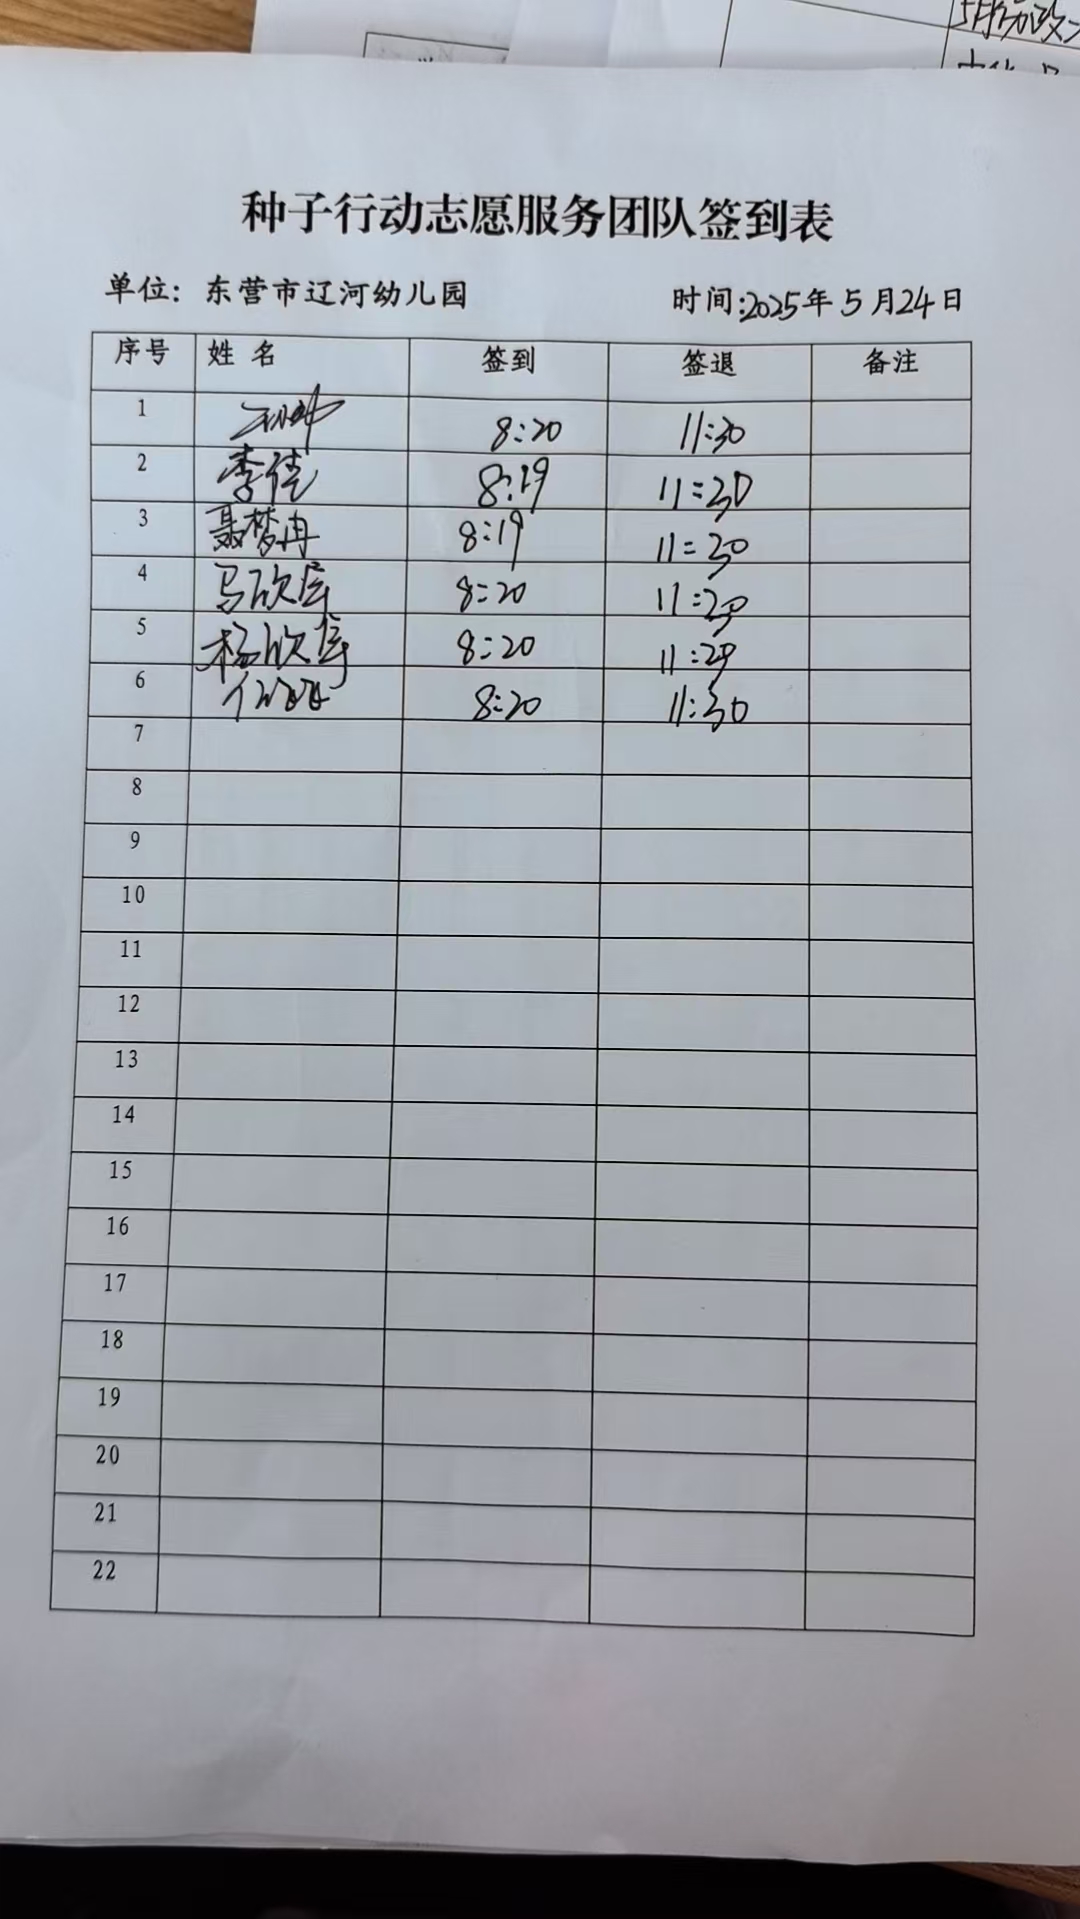 种子行动志愿服务团队签到表
单位：东营市辽河幼儿园 时间:2025年5月24日
序号 姓名 签到 签退 备注
1 8:20 11:30
2 李佳 8:19 11:30
3 聂梦冉 8:19 11:30
4 马欣 8:20 11:29
5 杨欣 8:20 11:29
6 8:20 11:30
7
8
9
10
11
12
13
14
15
16
17
18
19
20
21
22